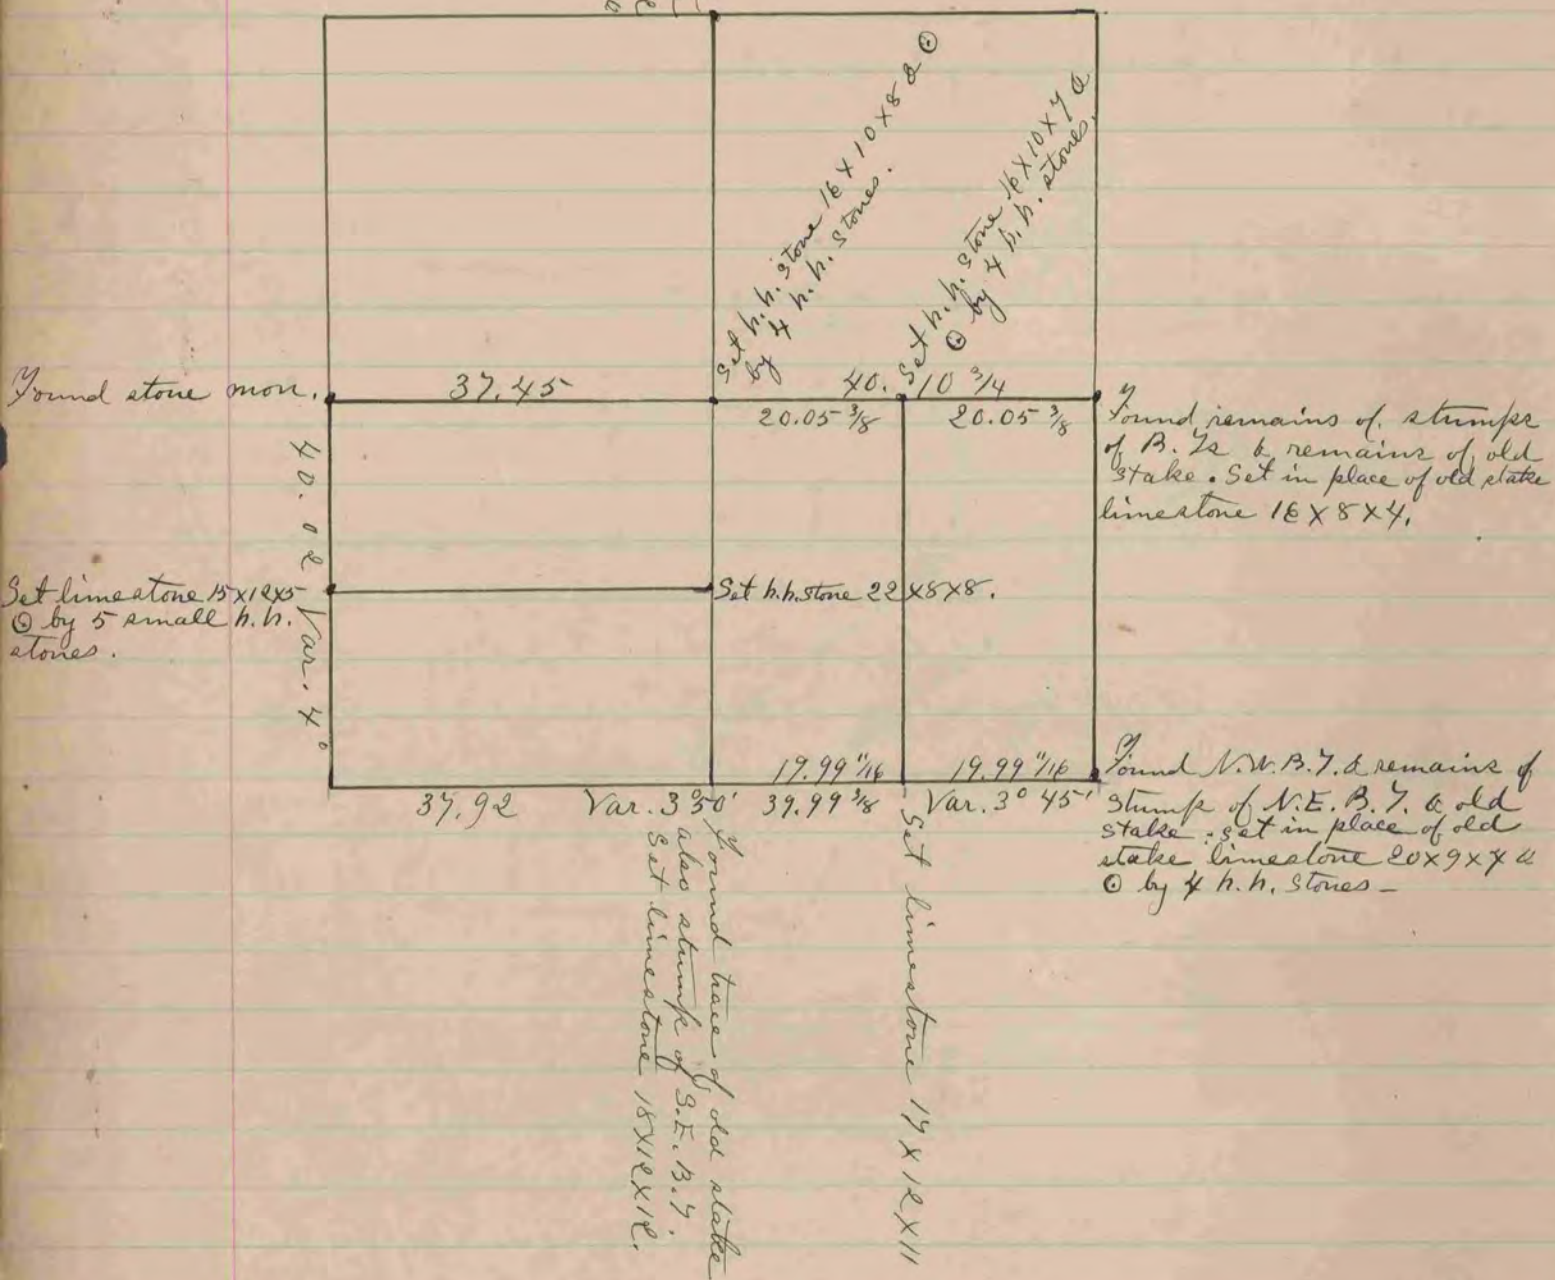 Set h.h. stone 16 X 10 X 8 & ⊙
by 4 h.h. stones.
Set h.h. stone 16 X 10 X 7 &
⊙ by 4 h.h. stones.
Found stone mon.
37.45
40.10 3/4
20.05 3/8
20.05 3/8
Found remains of stumps
of B. Ts & remains of old
stake. Set in place of old stake
limestone 16 X 8 X 4.
40.02 Var. 4°
Set limestone 15 X 12 X 5
⊙ by 5 small h.h.
stones.
Set h.h. stone 22 X 8 X 8.
19.99 11/16
19.99 11/16
37.92
Var. 3°50'
39.99 3/8
Var. 3° 45'
Found N.W. B.T. & remains of
stump of N.E. B.T. & old
stake. Set in place of old
stake limestone 20 X 9 X 7 &
⊙ by 4 h.h. stones –
Found trace of old stake
also stump of S.E. B.T.
Set limestone 18 X 12 X 12.
Set limestone 17 X 12 X 11